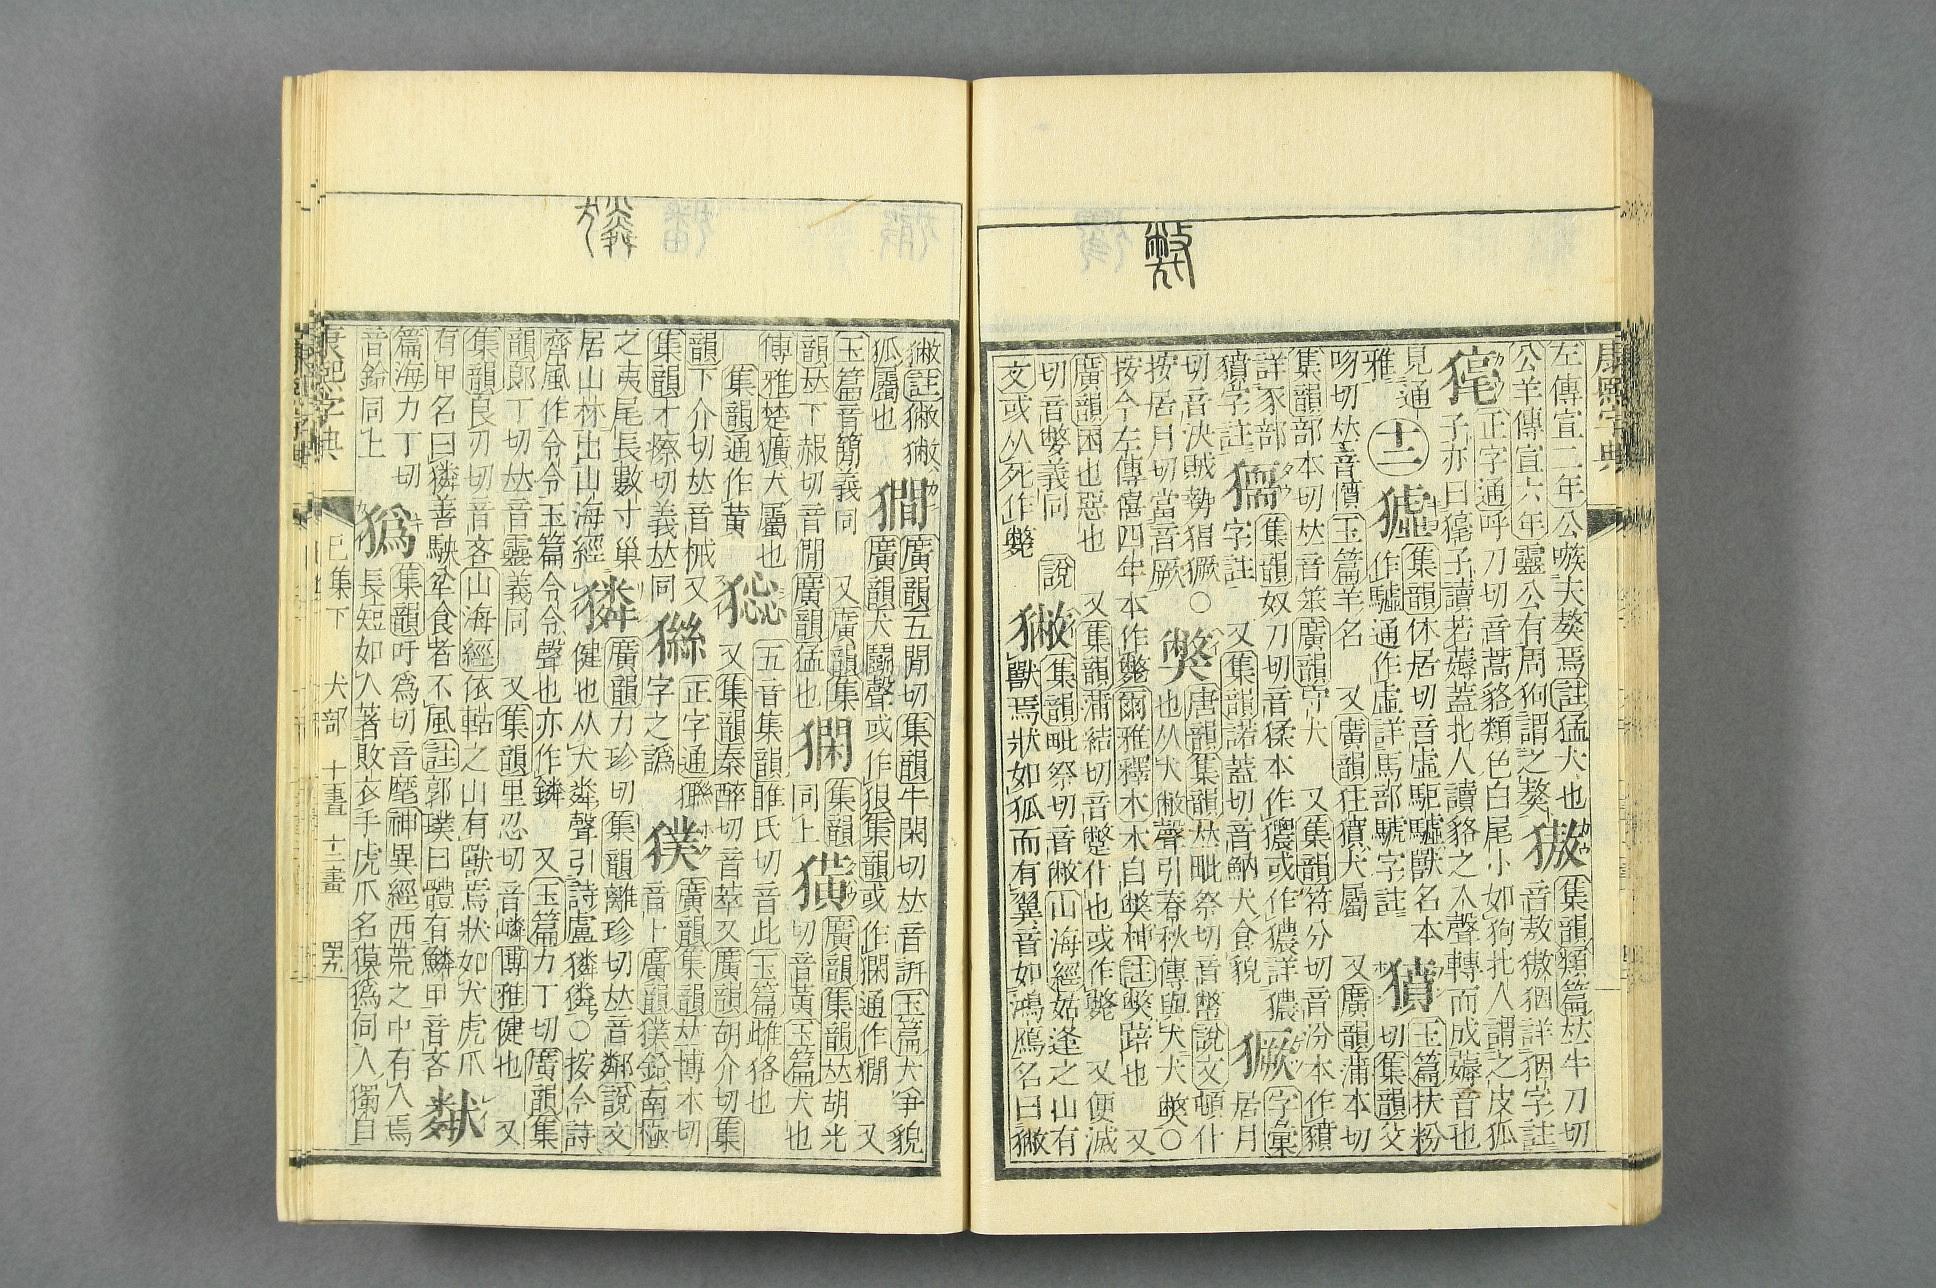 左傳宣二年公嗾夫獒焉註猛犬也獓集韻類篇𠀤牛刀切
公羊傳宣六年靈公有周狗謂之獒音敖獓㺄詳㺄字註
正字通呼刀切音蒿貉類色白尾小如狗北人謂之皮狐
子讀若薅蓋北人讀貉之入聲轉而成薅音也
見通十二集韻休居切音虛駏驉獸名本獖玉篇扶粉
雅作驉通作虛詳馬部驉字註切集韻父
吻切𠀤音憤玉篇羊名 又廣韻狂獖犬屬 又廣韻蒲本切
集韻部本切𠀤音笨廣韻守犬 又集韻符分切音汾本作豶
詳豕部集韻奴刀切音猱本作獿或作獗字彙
豶字註字註 又集韻諾蓋切音魶犬食貌居月
切音決賊勢猖獗○獘唐韻集韻𠀤毗祭切音幣說文頓仆
按居月切當音厥也从犬敝聲引春秋傳與犬犬獘○
按今左傳僖四年本作斃爾雅釋木木自獘柛註獘踣也 又
廣韻困也惡也 又集韻蒲結切音蹩仆也或作斃 又便滅
切音嫳義同 說獙集韻毗祭切音敝山海經姑逢之山有
文或从死作斃獸焉狀如狐而有翼音如鴻鴈名曰獙
康熙字典
獙註獙獙獡廣韻五閒切集韻牛閑切𠀤音訮玉篇犬爭貌
狐屬也廣韻犬鬭聲或作狠集韻或作㺊通作獡 又
玉篇音簡義同 又廣韻集獷廣韻集韻𠀤胡光
韻𠀤下赧切音僩廣韻猛也集韻同上切音黃玉篇犬也
傳雅楚獷犬屬也五音集韻雖氏切音此玉篇雌狢也
集韻通作黃又集韻秦醉切音萃又廣韻胡介切集
韻下介切𠀤音械又正字通獙獛廣韻集韻𠀤博木切
集韻才瘵切義𠀤同字之譌音卜廣韻獛鉛南極
之夷尾長數寸巢獜廣韻力珍切集韻離珍切𠀤音鄰說文
居山林出山海經健也从犬粦聲引詩盧獜獜○按今詩
齊風作令令玉篇令令聲也亦作鏻 又玉篇力丁切廣韻集
韻郎丁切𠀤音靈義同 又集韻里忍切音嶙博雅健也 又
集韻良刃切音吝山海經依軲之山有獸焉狀如犬虎爪
有甲名曰獜善駚𡘋食者不風註郭璞曰體有鱗甲音吝
篇海力丁切獩集韻吁爲切音麾神異經西荒之中有人焉
音鈴同上長短如人著敗衣手虎爪名獏㺔伺人獨自
康熙字典 巳集下 犬部 十一畫 十二畫 四九